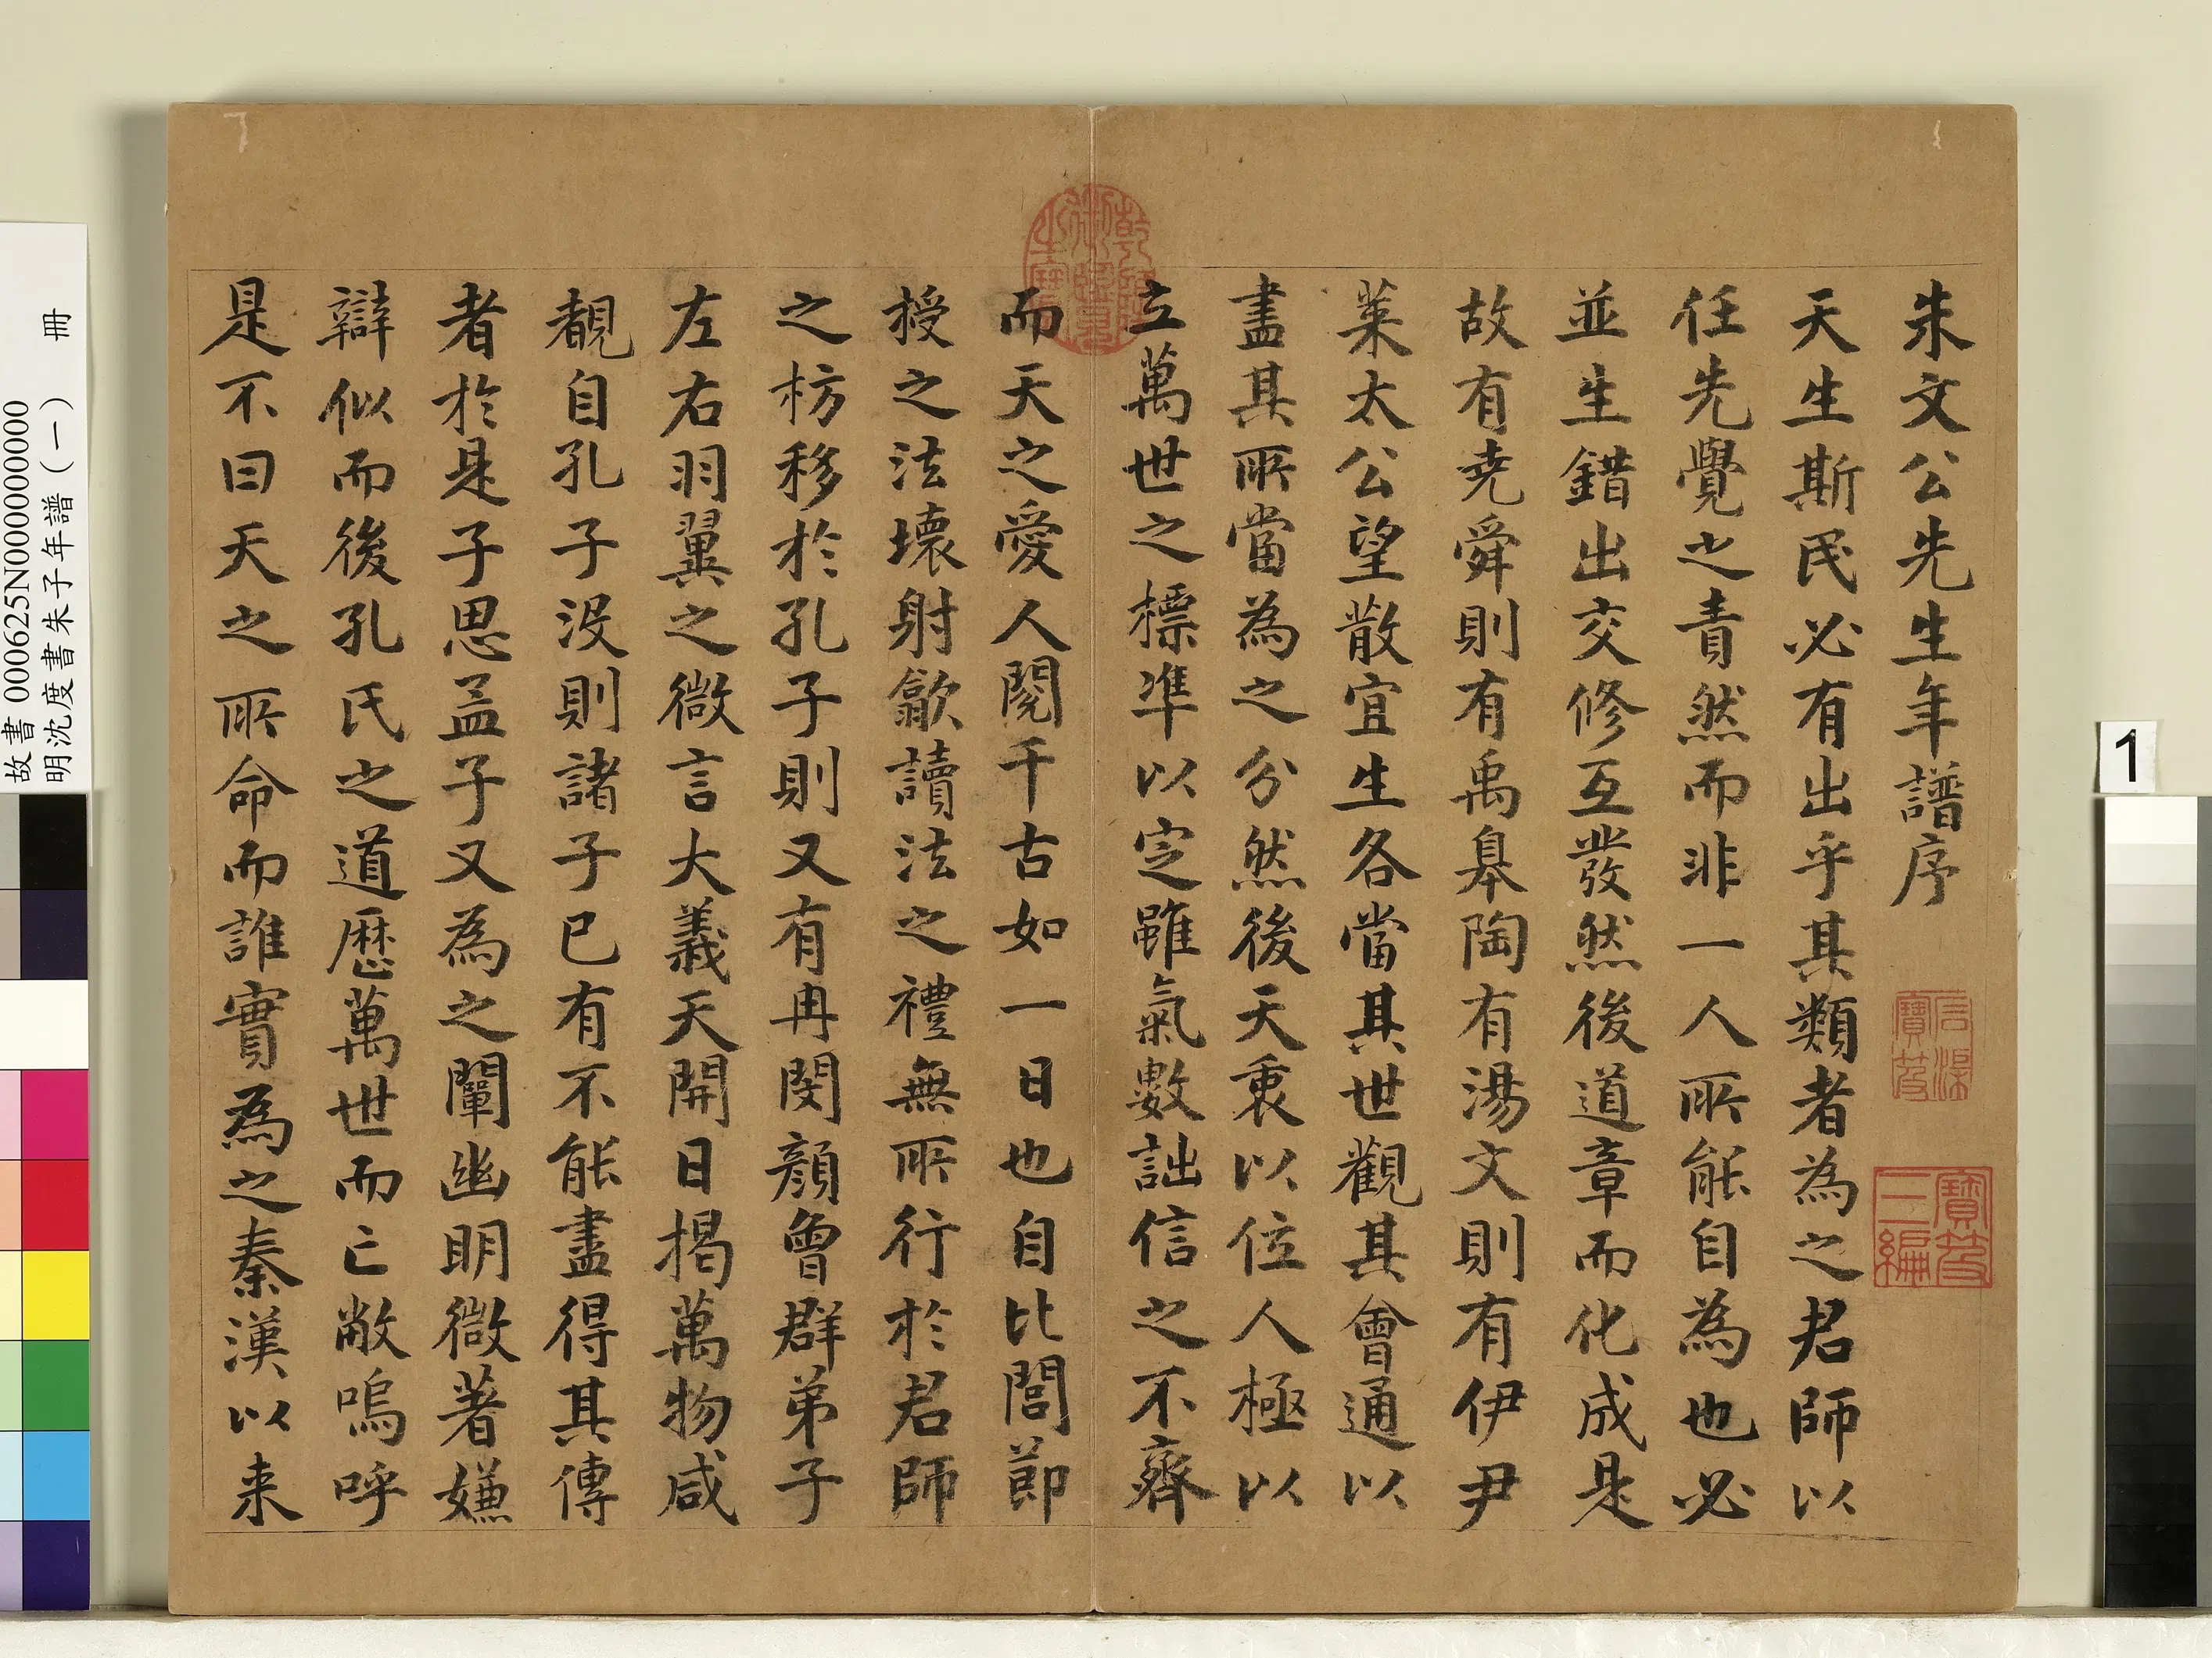 朱文公先生年譜序
天生斯民必有出乎其類者為之君師以
任先覺之責然而非一人所能自為也必
並生錯出交修互發然後道章而化成是
故有堯舜則有禹皋陶有湯文則有伊尹
萊太公望散宜生各當其世觀其會通以
盡其所當為之分然後天衷以位人極以
立萬世之標準以定雖氣數詘信之不齊
而天之愛人閱千古如一日也自比閭節
授之法壞射飲讀法之禮無所行於君師
之枋移於孔子則又有冉閔顏曾群弟子
左右羽翼之微言大義天開日揭萬物咸
覩自孔子沒則諸子已有不能盡得其傳
者於是子思孟子又為之闡幽明微著嫌
辯似而後孔氏之道歷萬世而亡敝嗚呼
是不曰天之所命而誰實為之秦漢以来
乾隆御覽之寶
石渠寶笈
寶笈三編
故書 000625N000000000
明沈度書朱子年譜（一） 冊
1